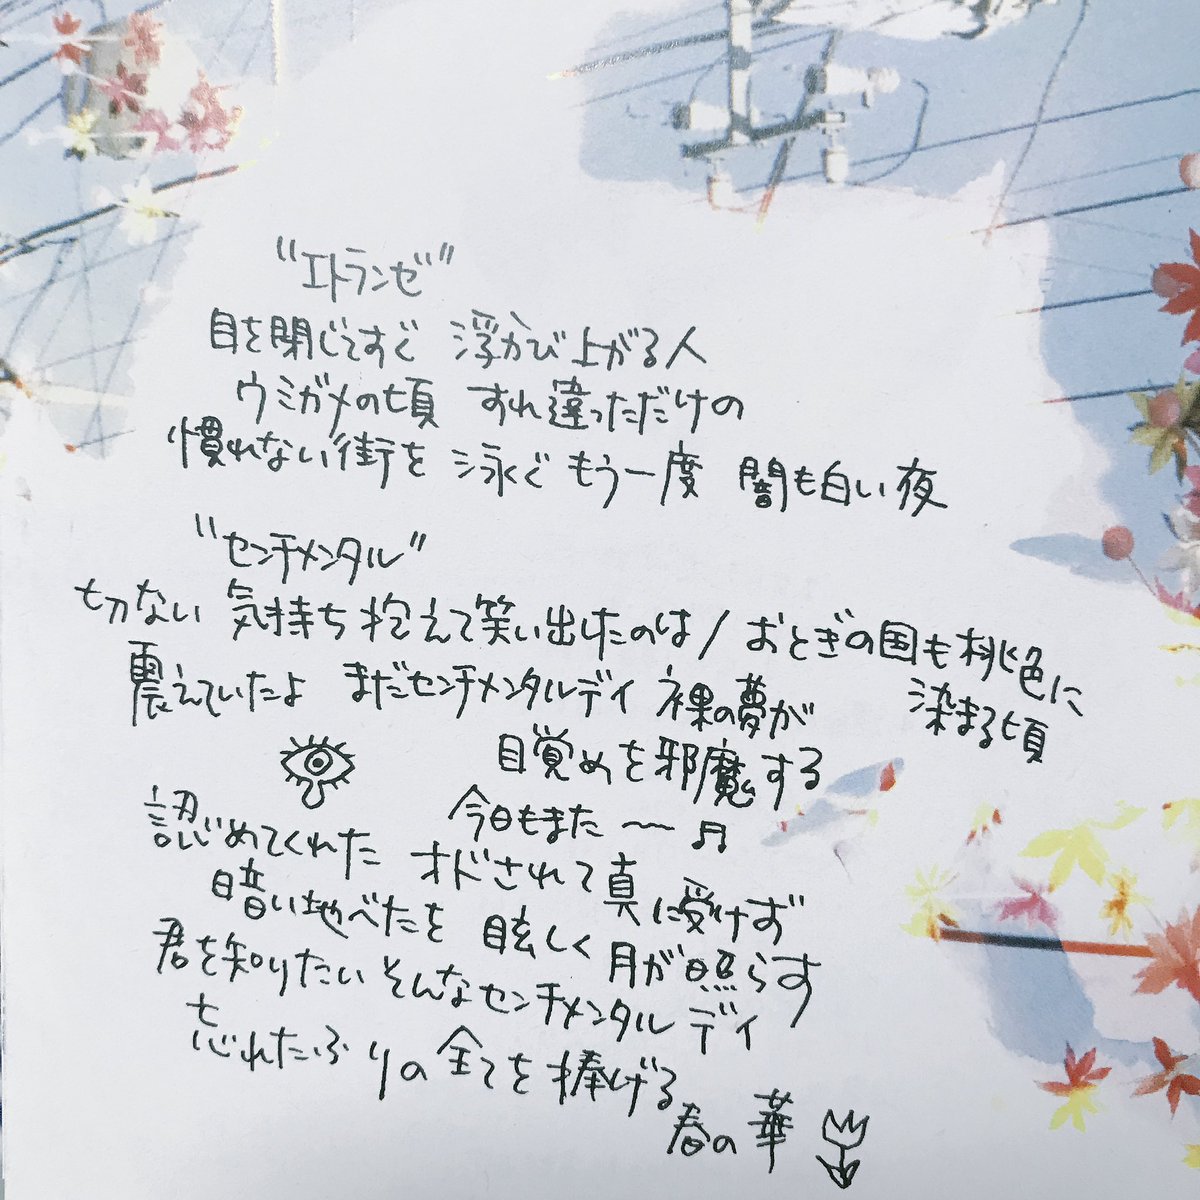 "エトランゼ"
目を閉じてすぐ 浮かび上がる人
ウミガメの頃 すれ違っただけの
慣れない街を 泳ぐ もう一度 闇も白い夜
"センチメンタル"
切ない 気持ち 抱えて笑い出したのは / おとぎの国も桃色に
染まる頃
震えていたよ まだセンチメンタルデイ 裸の夢が
目覚めを邪魔する
今日もまた 〜♫
認めてくれた オドされて真に受けず
暗い地べたを 眩しく 月が照らす
君を知りたい そんなセンチメンタル デイ
忘れたふりの 全てを捧げる
春の華